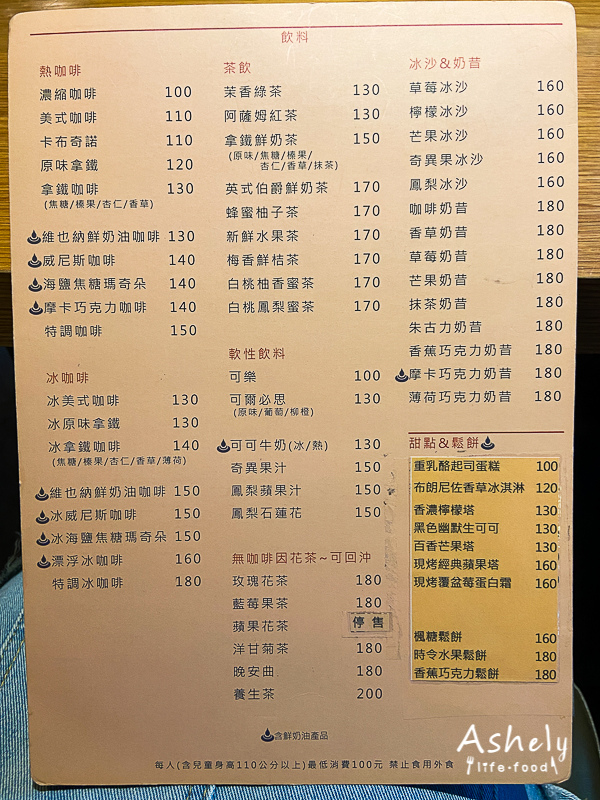 飲料
熱咖啡
濃縮咖啡 100
美式咖啡 110
卡布奇諾 110
原味拿鐵 120
拿鐵咖啡 130
(焦糖/榛果/杏仁/香草)
維也納鮮奶油咖啡 130
威尼斯咖啡 140
海鹽焦糖瑪奇朵 140
摩卡巧克力咖啡 140
特調咖啡 150
冰咖啡
冰美式咖啡 130
冰原味拿鐵 130
冰拿鐵咖啡 140
(焦糖/榛果/杏仁/香草/薄荷)
維也納鮮奶油咖啡 150
冰威尼斯咖啡 150
冰海鹽焦糖瑪奇朵 150
漂浮冰咖啡 160
特調冰咖啡 180
茶飲
茉香綠茶 130
阿薩姆紅茶 130
拿鐵鮮奶茶 150
(原味/焦糖/榛果/
杏仁/香草/抹茶)
英式伯爵鮮奶茶 170
蜂蜜柚子茶 170
新鮮水果茶 170
梅香鮮桔茶 170
白桃柚香蜜茶 170
白桃鳳梨蜜茶 170
軟性飲料
可樂 100
可爾必思 130
(原味/葡萄/柳橙)
可可牛奶(冰/熱) 130
奇異果汁 150
鳳梨蘋果汁 150
鳳梨石蓮花 150
無咖啡因花茶~可回沖
玫瑰花茶 180
藍莓果茶 180
蘋果花茶 停售
洋甘菊茶 180
晚安曲 180
養生茶 200
冰沙&奶昔
草莓冰沙 160
檸檬冰沙 160
芒果冰沙 160
奇異果冰沙 160
鳳梨冰沙 160
咖啡奶昔 180
香草奶昔 180
草莓奶昔 180
芒果奶昔 180
抹茶奶昔 180
朱古力奶昔 180
香蕉巧克力奶昔 180
摩卡巧克力奶昔 180
薄荷巧克力奶昔 180
甜點&鬆餅
重乳酪起司蛋糕 100
布朗尼佐香草冰淇淋 120
香濃檸檬塔 130
黑色幽默生可可 130
百香芒果塔 130
現烤經典蘋果塔 160
現烤覆盆莓蛋白霜 160
楓糖鬆餅 160
時令水果鬆餅 180
香蕉巧克力鬆餅 180
含鮮奶油產品
每人(含兒童身高110公分以上)最低消費100元 禁止食用外食
Ashely
life·food